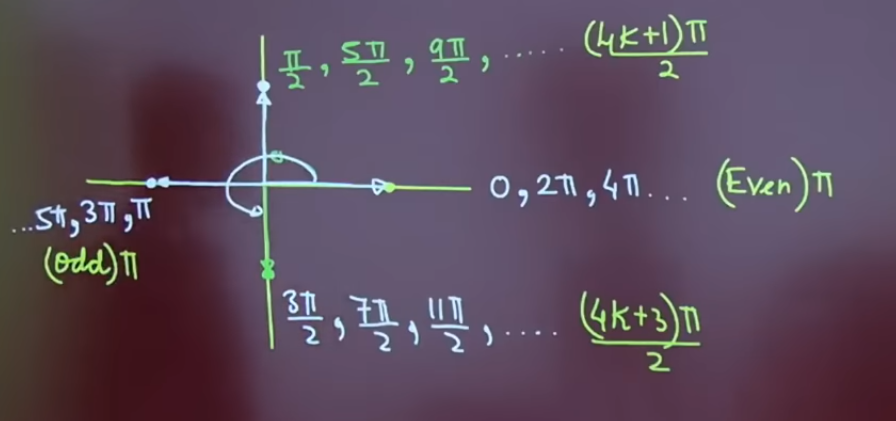 π/2, 5π/2, 9π/2, ..... (4K+1)π/2
0, 2π, 4π... (Even)π
...5π, 3π, π
(Odd)π
3π/2, 7π/2, 11π/2, .... (4K+3)π/2